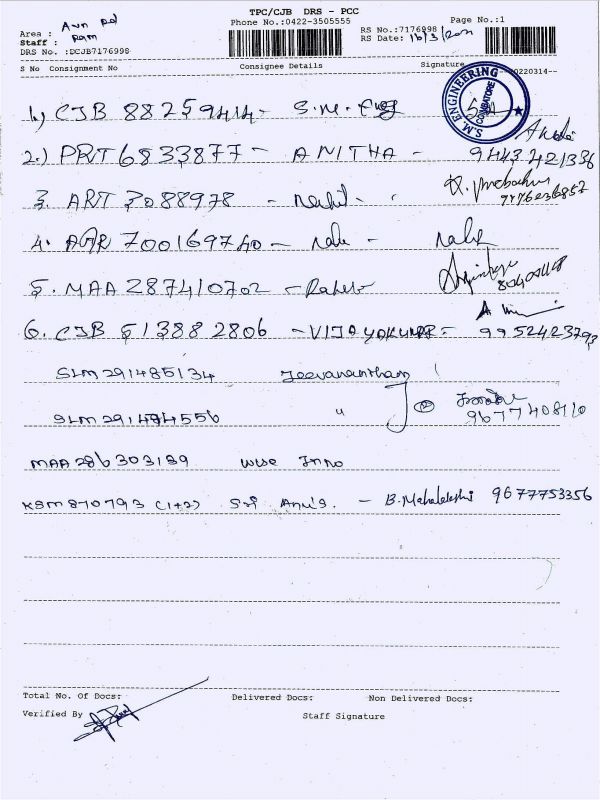 TPC/CJB DRS - PCC
Phone No.:0422-3505555
Page No.:1
Area : Avn Rd
Staff : Ram
DRS No. :DCJB7176998
RS No.:7176998
RS Date: 16/3/2021
S No Consignment No Consignee Details Signature
S.M. ENGINEERING COIMBATORE
0220314--
1.) CJB 88259414 - S.M. Eng
2.) PRT 6833877 - ANITHA - 9443421336
3. ART 3088978 - 9976236857
4. AGR 700169740 -
5. MAA 287410702 - Rahesh
6. CJB 513882806 - VIJAYAKUMAR = 9952423793
SLM 291485134 Jeevanantham
SLM 291494556 " 2 9677408110
MAA 286303139 wise Inno
KSM 870793 (1+2) Sri Anu's. - B. Mahalakshi 9677753356
Total No. Of Docs: Delivered Docs: Non Delivered Docs:
Verified By
Staff Signature